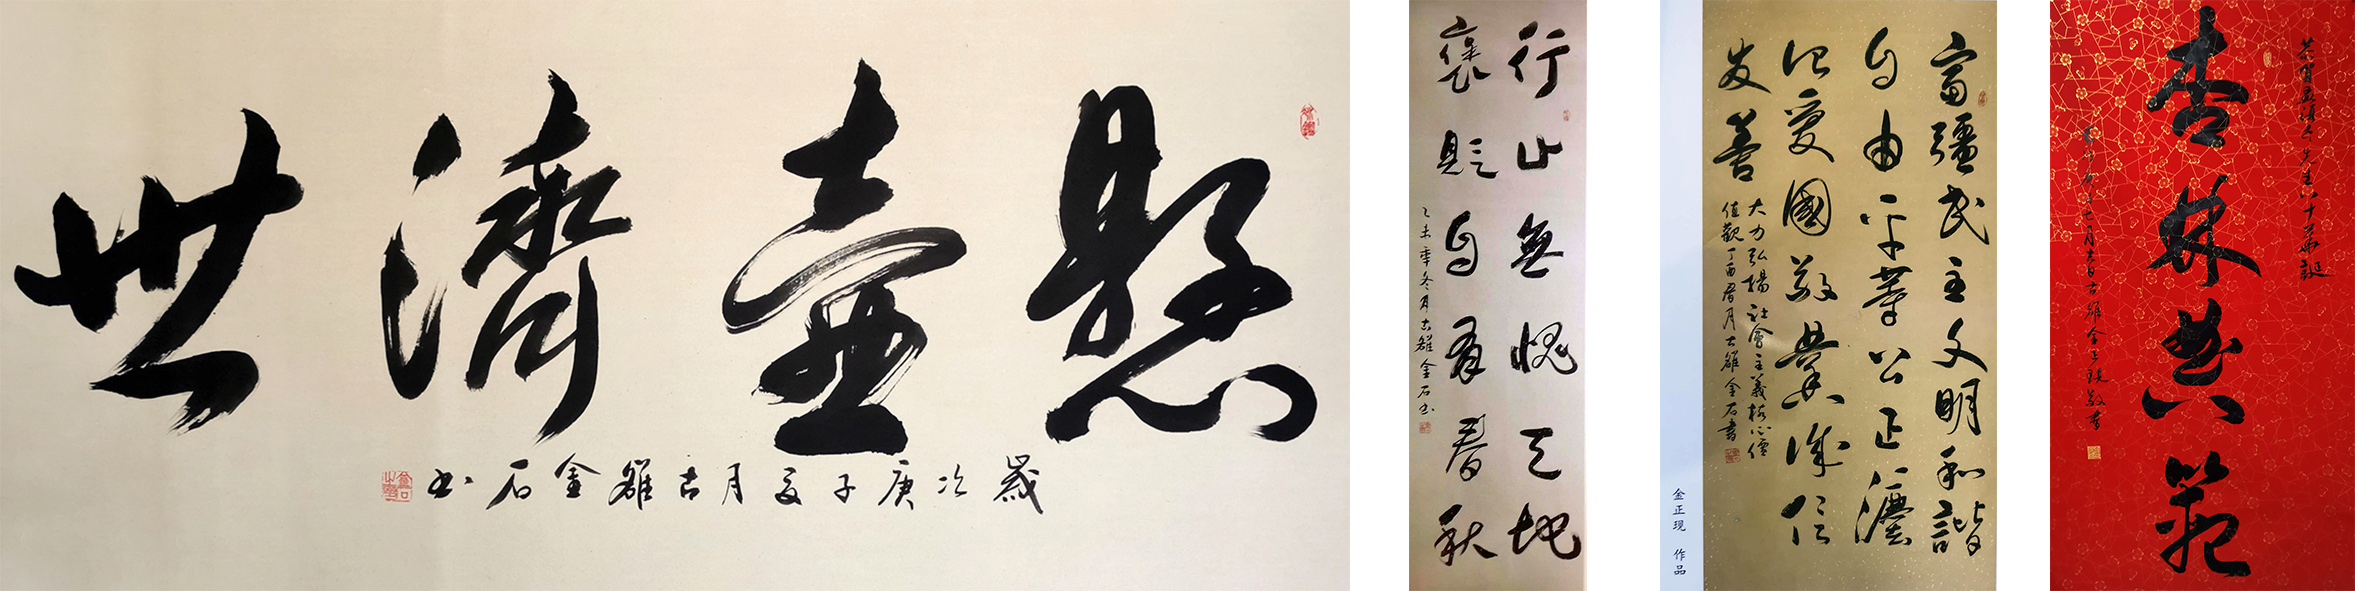 懸壺濟世
歲次庚子夏月古雒金石书
行止無愧天地
褒貶自有春秋
乙未年冬月古雒金石书
富彊民主文明和諧
自由平等公正灋
治愛國敬業誠信
友善
大力弘揚社會主義核心價
值觀丁酉春月古雒金石書
金正現 作品
恭賀先生八十華誕
杏林典範
七月吉日古雒金正現敬書